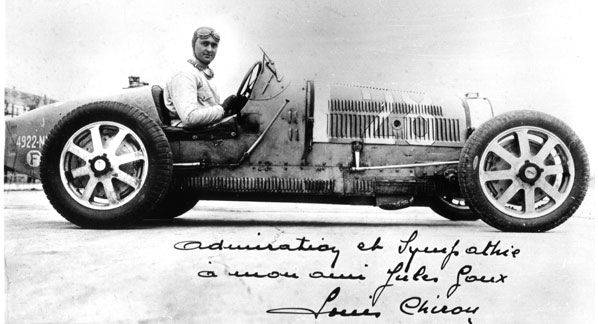 4922-N
F
admiration et Sympathie
à mon ami Jules Goux
Louis Chiron